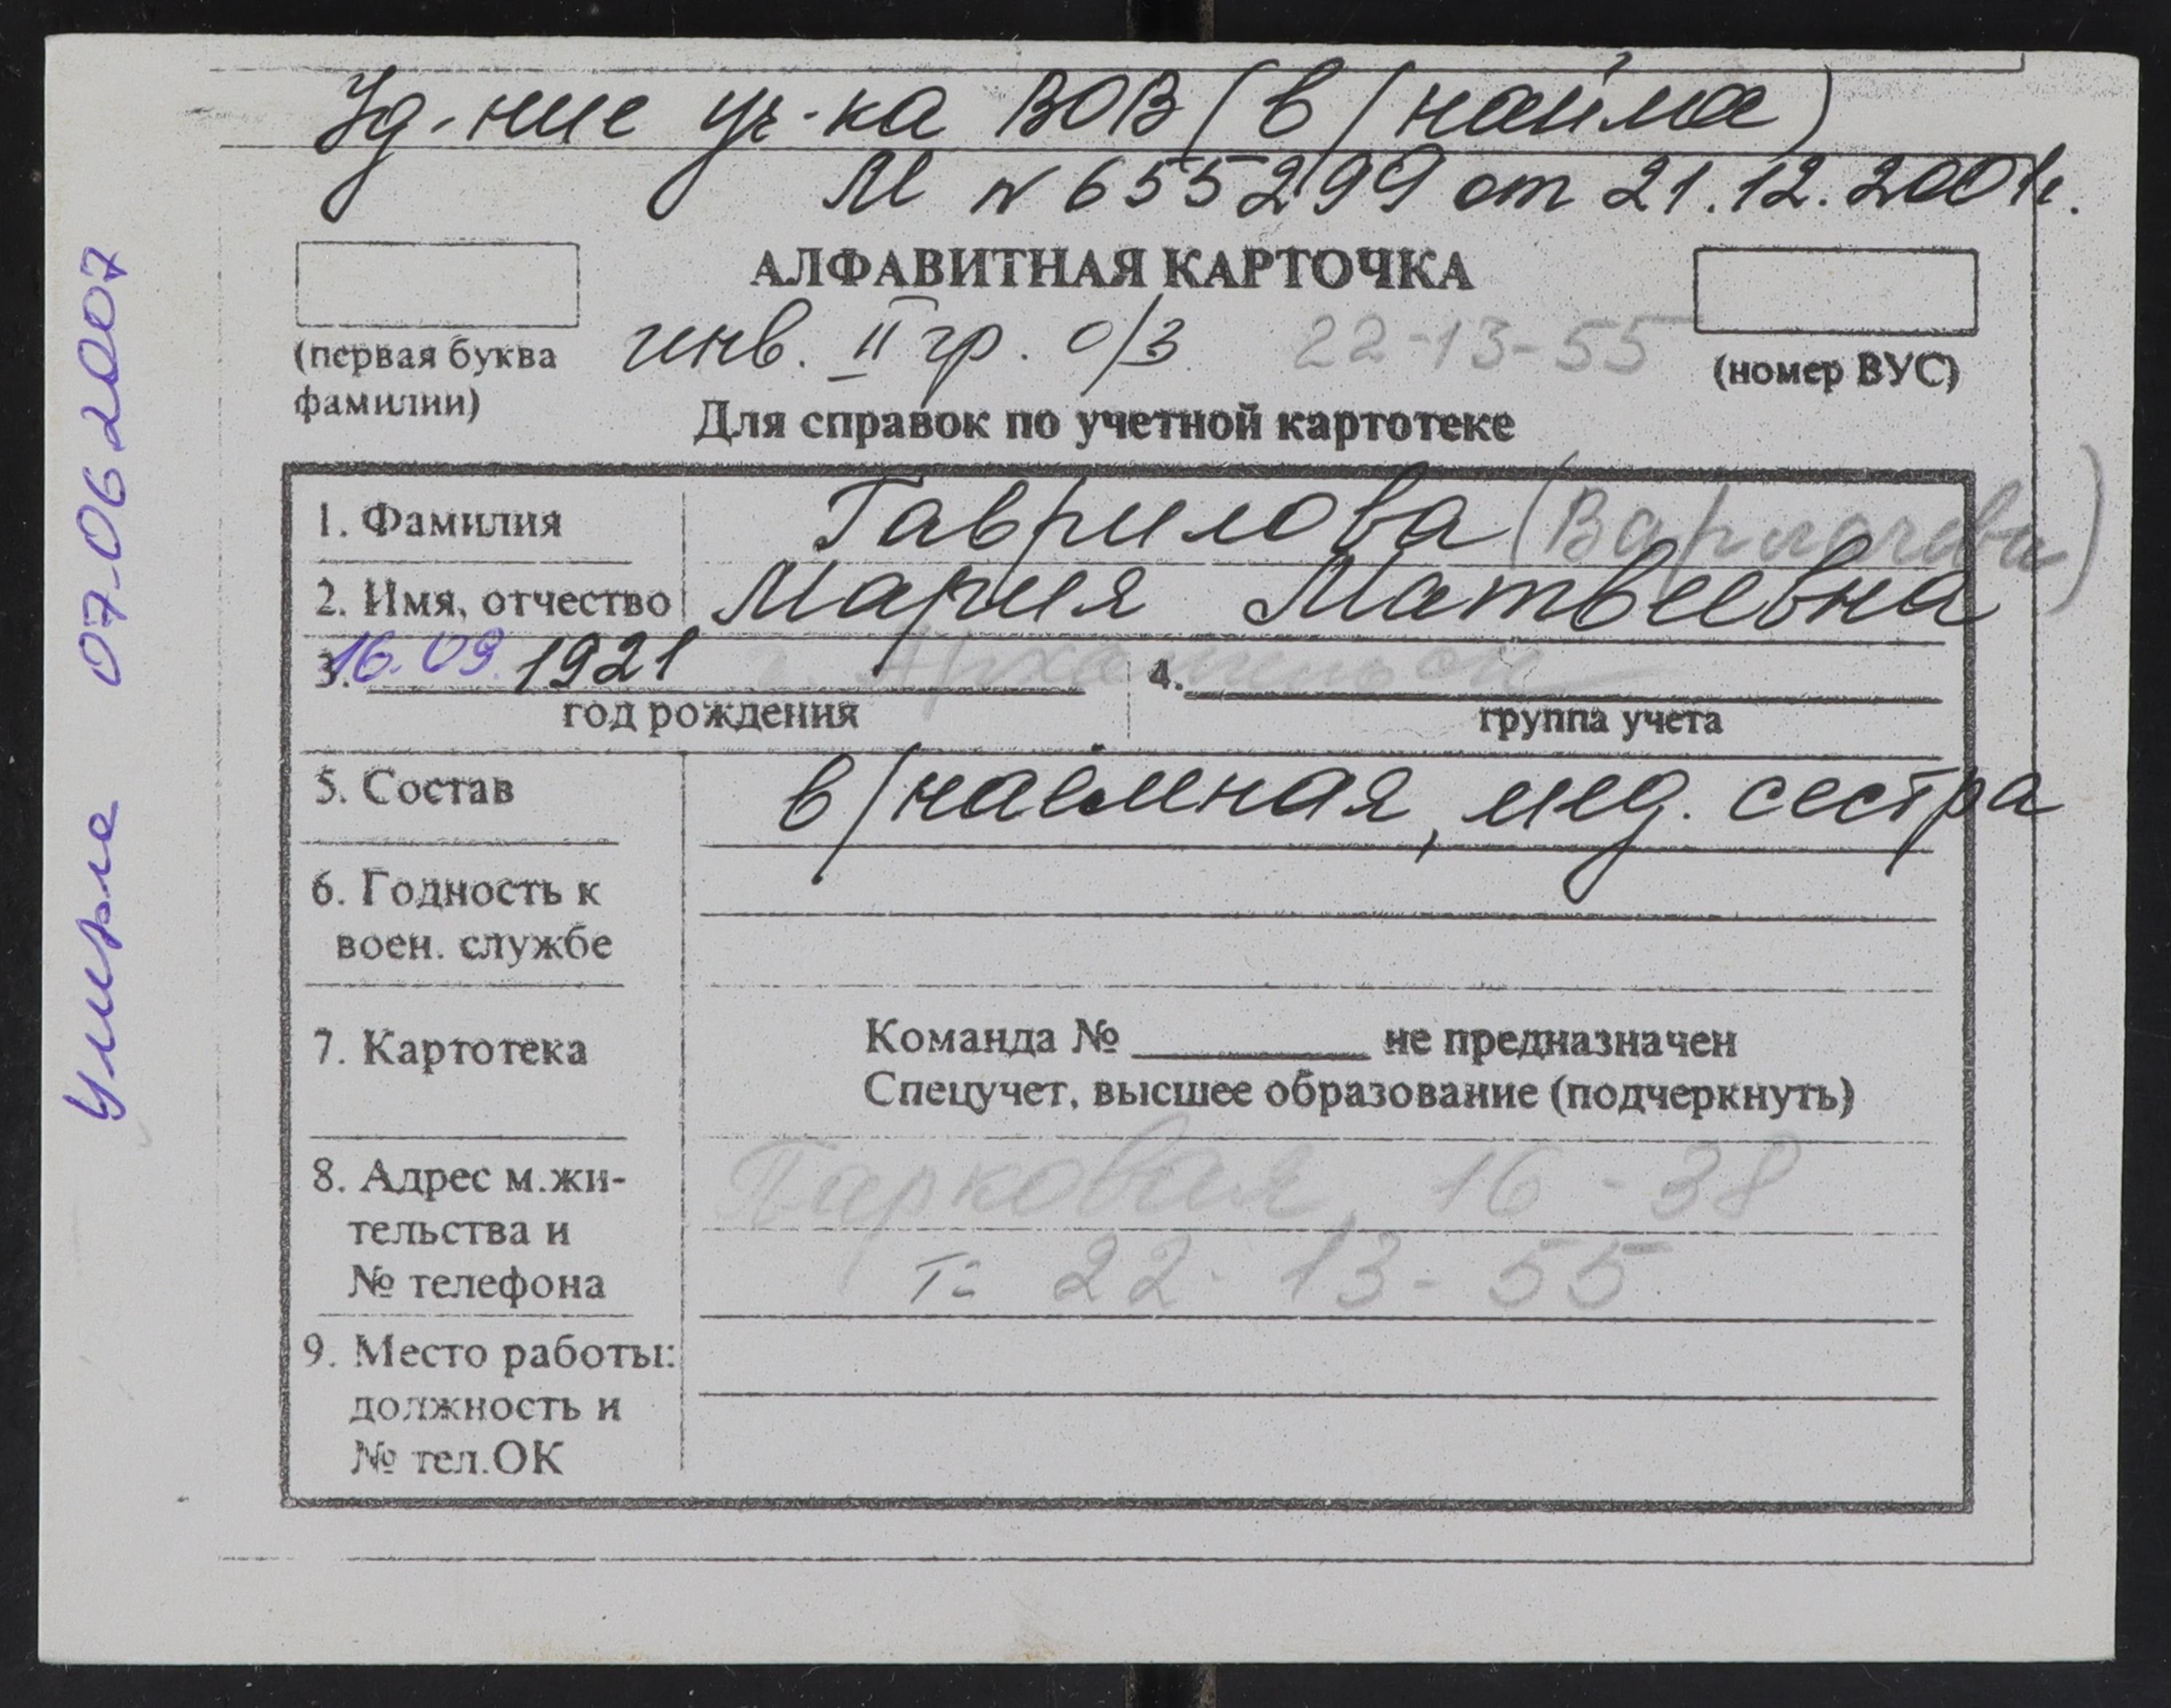 Уд-ние уч-ка ВОВ (в/найма)
М № 655299 от 21.12.2001г.
АЛФАВИТНАЯ КАРТОЧКА
(первая буква
фамилии)
инв. II гр. о/з 22-13-55
(номер ВУС)
Для справок по учетной картотеке
1. Фамилия Гаврилова
2. Имя, отчество Мария Матвеевна
3. 16.09.1921 4.
год рождения группа учета
5. Состав в/наёмная, мед. сестра
6. Годность к
воен. службе
7. Картотека Команда № не предназначен
Спецучет, высшее образование (подчеркнуть)
8. Адрес м.жи- Парковая, 16-38
тельства и
№ телефона т- 22-13-55
9. Место работы:
должность и
№ тел.ОК
умерла 07-06 2007